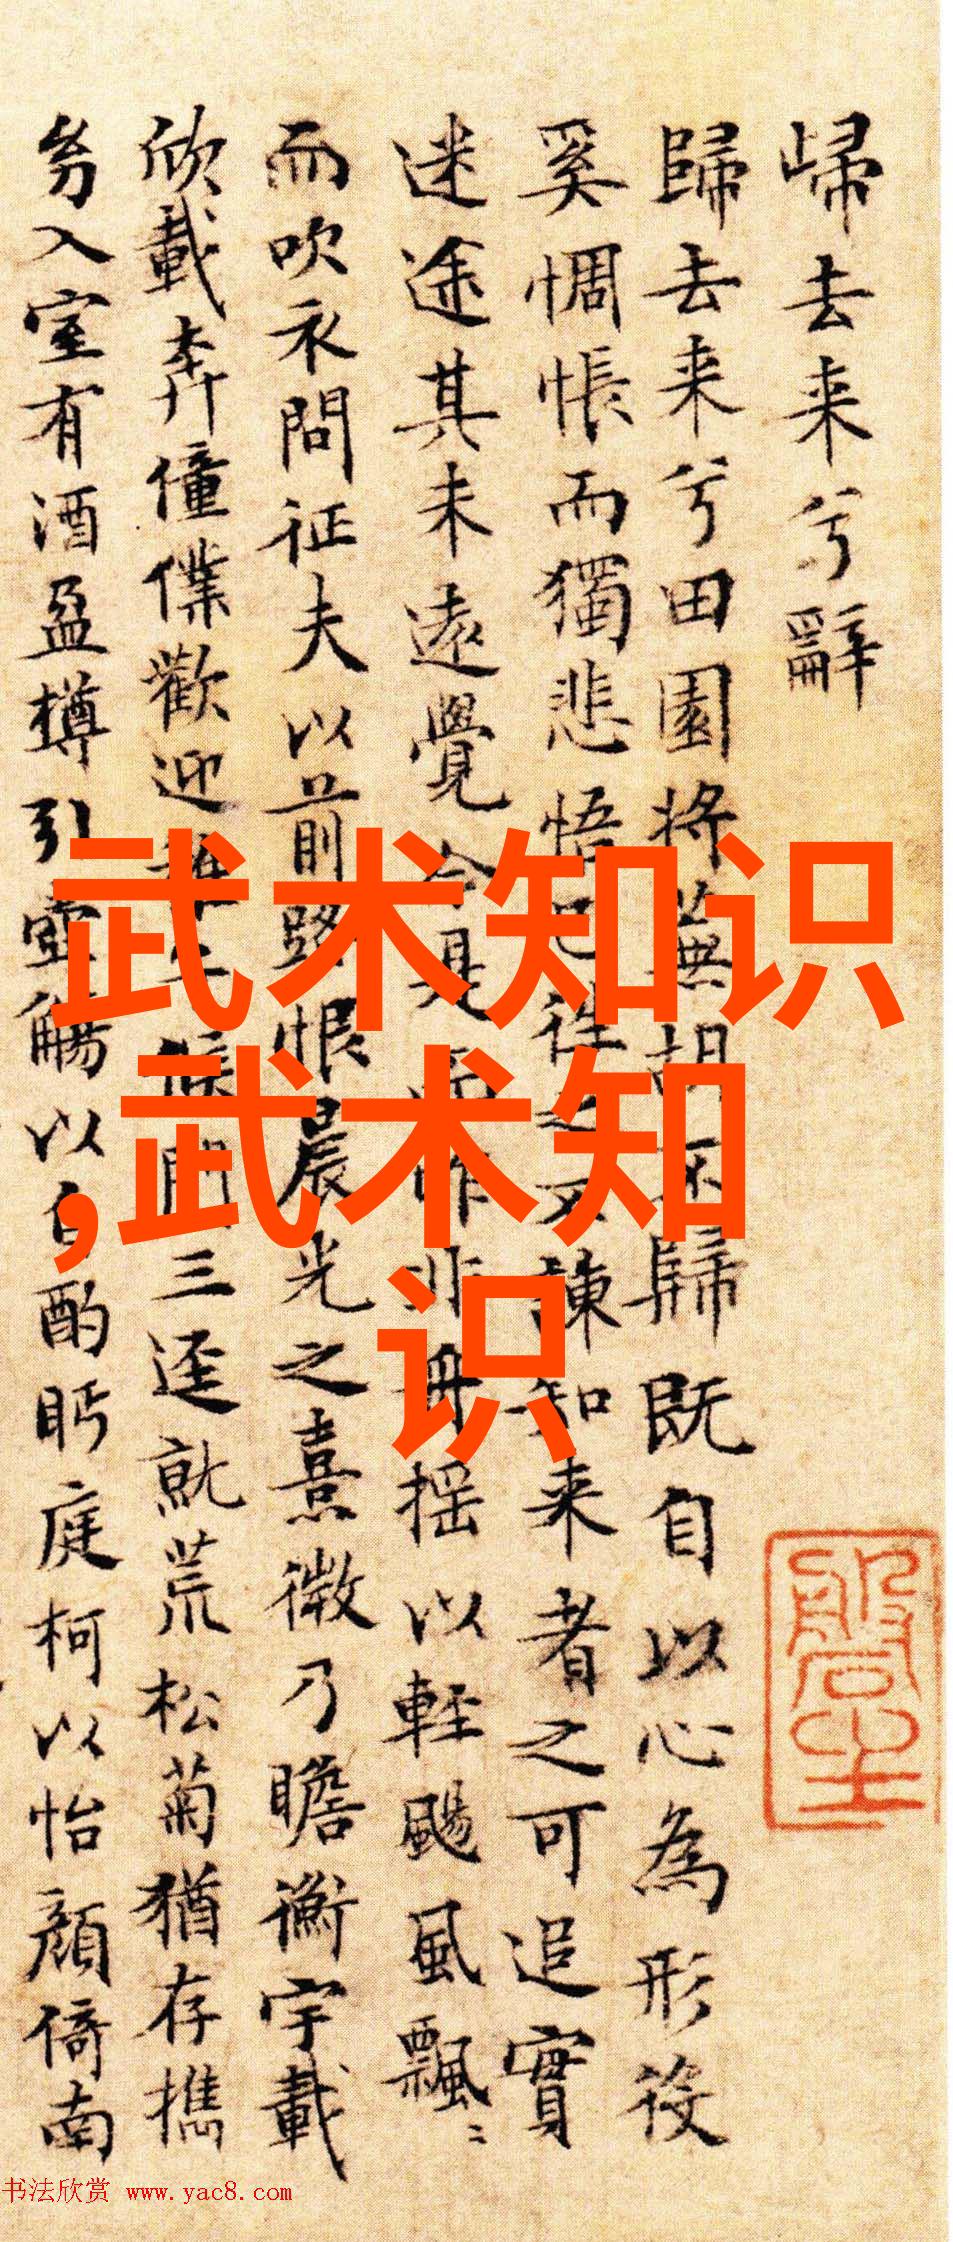 歸去来兮辭
歸去来兮田園将蕪胡不歸既自以心為形役
奚惆悵而獨悲悟已往之不諫知来者之可追實
迷途其未遠覺今是而昨非舟揺以輕颺風飄〻
而吹衣問征夫以前路恨晨光之熹微乃瞻衡宇載
欣載奔僮僕歡迎稚子候門三逕就荒松菊猶存携
㓜入室有酒盈樽引壺觴以自酌眄庭柯以怡顔倚南
武术知识
,武术知
识
书法欣赏 www.yac8.com